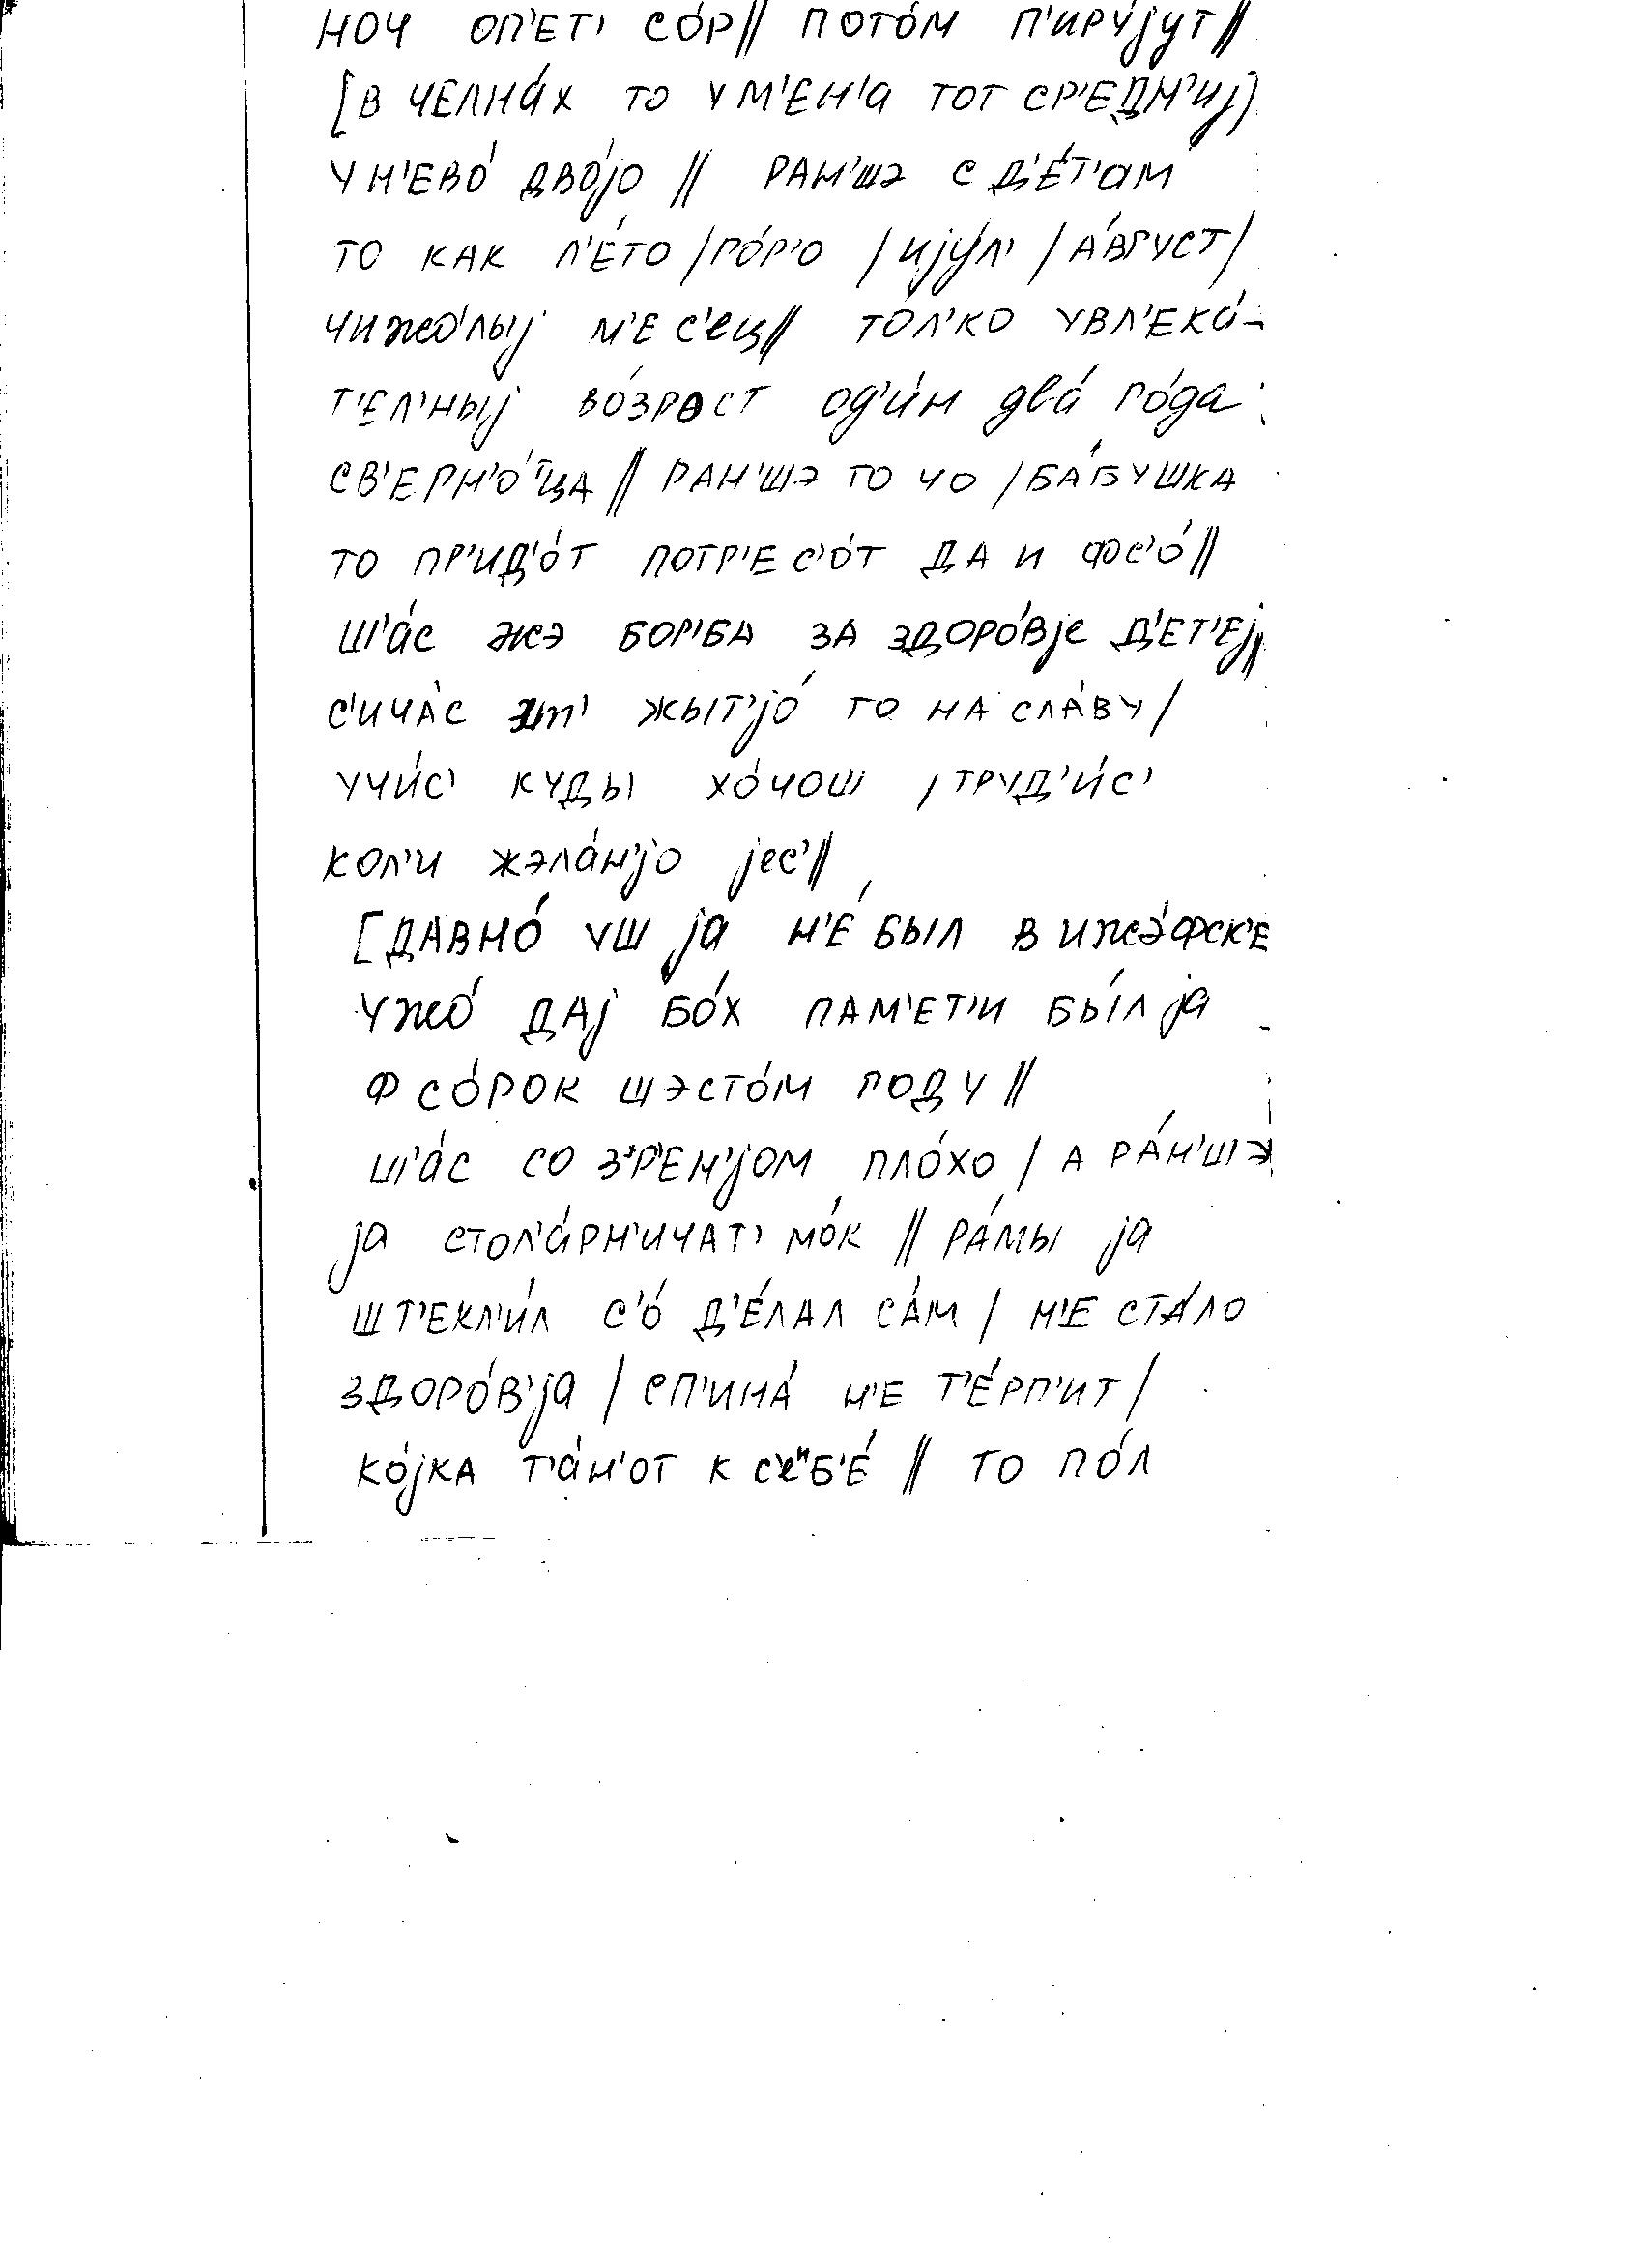 НОЧ ОП'ЕТ' СО́Р// ПОТО́М П'ИРУ́jУТ//
[В ЧЕЛНА́Х ТО У М'ЕН'А ТОТ СР'ЕДН'Иj]
У Н'ЕВО́ ДВО́jО // РАН'ШЭ С Д'Е́Т'АМ
ТО КАК Л'Е́ТО /ГО́Р'О /Иjу́Л' /А́ВГУСТ/
ЧИЖО́ЛЫj М'Е́С'ЕЦ// ТОЛ'КО УВЛ'ЕКА́-
Т'ЕЛ'НЫj ВО́ЗРАСТ ОД'И́Н ДВА́ ГО́ДА
СВ'ЕРН'О́ЦА // РАН'ШЭ ТО ЧО /БА́БУШКА
ТО ПР'ИД'О́Т ПОТР'ЕС'О́Т ДА И ФС'О́//
Ш'А́С ЖЭ БОР'БА ЗА ЗДОРО́ВjЕ Д'ЕТ'Еj//
С'ИЧА́С ЖЫТ'jО́ ТО НА СЛА́ВУ/
УЧИ́С' КУДЫ ХО́ЧОШ /ТРУД'И́С'
КОЛ'И ЖЭЛА́Н'jО jЕС'//
[ДАВНО́ УШ jА Н'Е́ БЫЛ В ИЖЭ́ФСК'Е
УЖО́ ДАj БО́Х ПАМ'ЕТ'И БЫ́Л jА
Ф СО́РОК ШЭСТО́М ГОДУ//
Ш'А́С СО З'Р'ЕН'jОМ ПЛО́ХО / А РА́Н'ШЭ
jА СТОЛ'А́РН'ИЧАТ' МО́К // РА́МЫ jА
ШТ'ЕКЛ'И́Л С'О́ Д'Е́ЛАЛ СА́М / Н'Е СТА́ЛО
ЗДОРО́В'jА / СП'ИНА́ Н'Е Т'Е́РП'ИТ/
КО́jКА Т'А́Н'ОТ К С'ЕᴻБ'Е́ // ТО ПО́Л